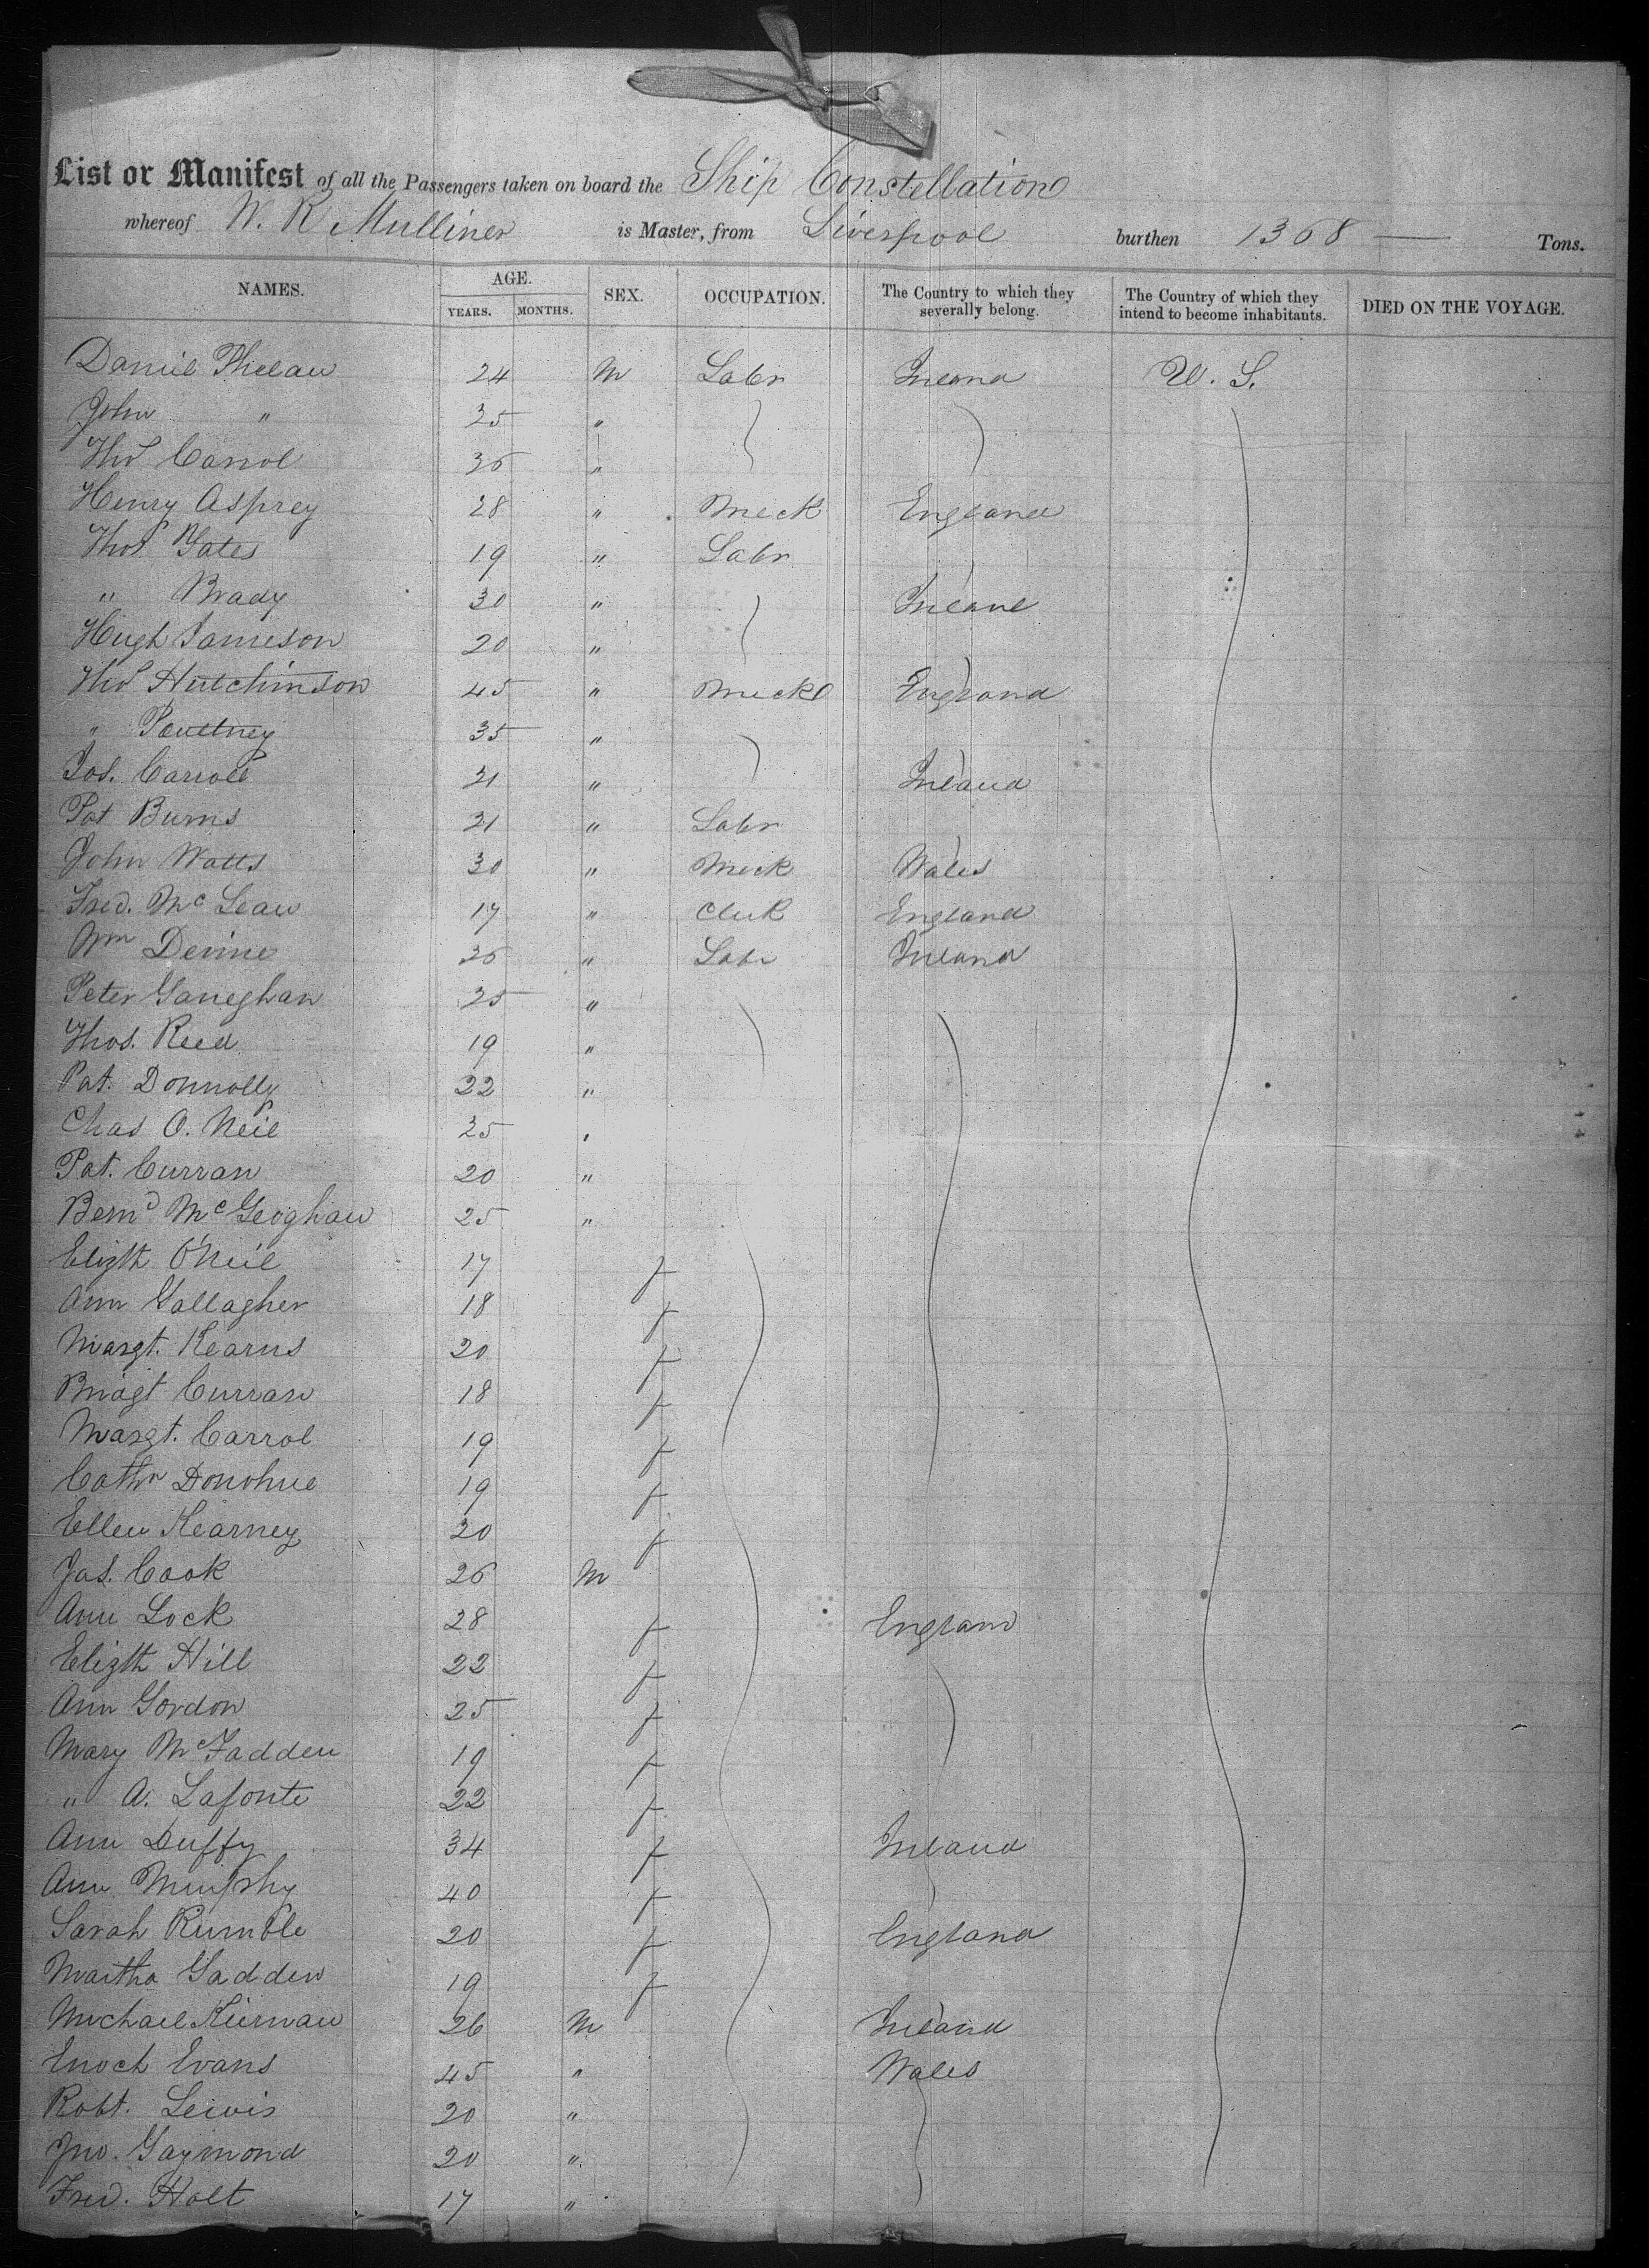 List or Manifest of all the Passengers taken on board the Ship Constellation
whereof W. R Mulliner is Master, from Liverpool burthen 1368 — Tons.
NAMES. AGE. YEARS. MONTHS. SEX. OCCUPATION. The Country to which they severally belong. The Country of which they intend to become inhabitants. DIED ON THE VOYAGE.
Daniel Phelan 24 M Labr Ireland U. S.
John " 25 "
Thos Carrol 26 "
Henry Asprey 28 " Meck England
Thos Yates 19 " Labr
" Brady 30 " Ireland
Hugh Jameson 20 "
Thos Hutchinson 45 " Meck England
" Poultney 35 "
Jos. Carroll 21 " Ireland
Pat Burns 21 " Labr
John Watts 30 " Meck Wales
Fred. Mc Lean 17 " Clerk England
Wm Devine 26 " Labr Ireland
Peter Ganeghan 25 "
Thos. Reed 19 "
Pat. Donnolly 22 "
Chas O. Neil 25 "
Pat. Curran 20 "
Bernd McGeoghan 25 "
Elizth O'Neil 17 f
Ann Gallagher 18 f
Margt. Kearns 20 f
Bridgt Curran 18 f
Margt. Carrol 19 f
Cathn Donohue 19 f
Ellen Kearney 20 f
Jas. Cook 26 M
Ann Lock 28 f England
Elizth Hill 22 f
Ann Gordon 25 f
Mary McFadden 19 f
" A. Lafonte 22 f
Ann Duffy 34 f Ireland
Ann Murphy 40 f
Sarah Rumble 20 f England
Martha Gadden 19 f
Michael Kiernan 26 M Ireland
Enoch Evans 45 " Wales
Robt. Lewis 20 "
Jno. Gaymond 20 "
Fred. Holt 17 "